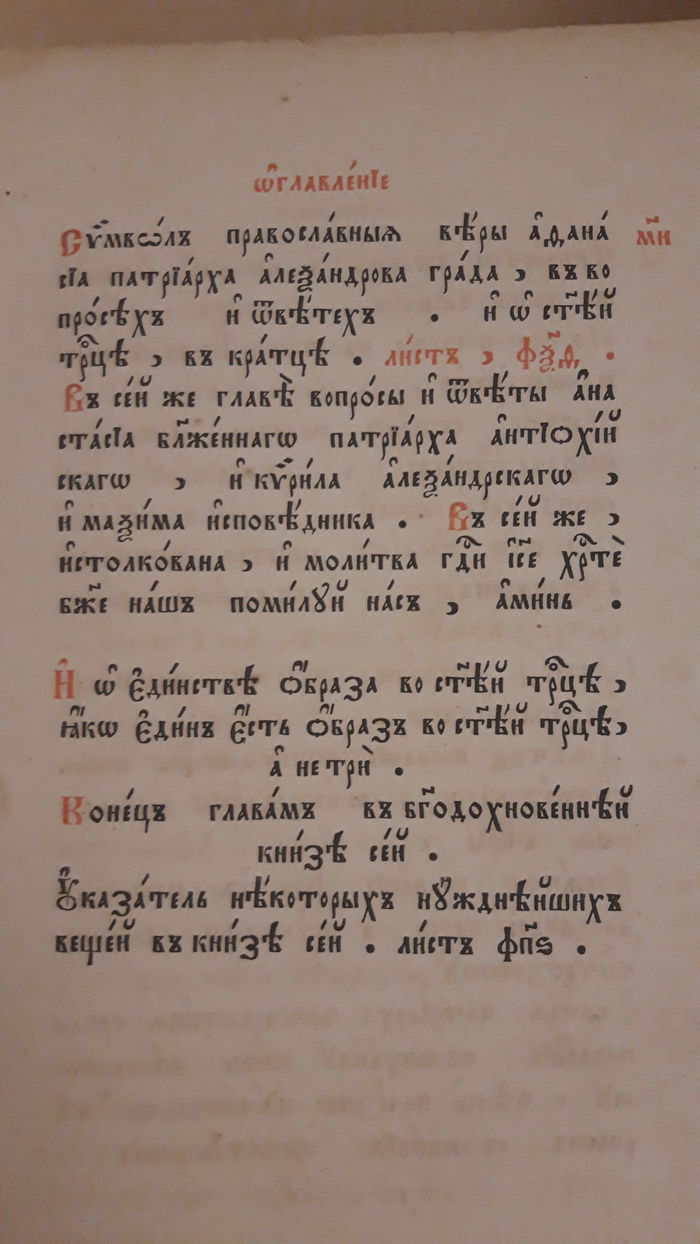 Ѡ҆главле́нїе
Сѷ́мво́лъ правосла́вныѧ вѣ́ры а҆ѳана́ м҃и
сїа патрїа́рха а҆леѯа́ндрова гра́да , въ во
про́сѣхъ и҆ ѿвѣ́тех​ъ . и҆ ѡ҆ ст҃ѣ́й
трⷪ҇цѣ , въ кра́тцѣ . ли́стъ , фѯ҃ѳ .
Въ се́й же главѣ̀ вопро́сы и҆ ѿвѣ́ты а҆на
ста́сїа бл҃же́ннагѡ патрїа́рха а҆нтїохі́й
скагѡ , и҆ кѷри́ла а҆леѯа́ндрскагѡ ,
и҆ маѯи́ма и҆сповѣ́дника . Въ се́й же ,
и҆столко́вана , и҆ моли́тва гдⷭ҇и і҆с҃е хрⷭ҇тѐ
бж҃е на́шъ поми́лꙋй на́съ , а҆ми́нь .
И҆ ѡ҆ є҆ди́нствѣ о҆́браза во ст҃ѣ́й трⷪ҇цѣ ,
ꙗ҆́кѡ є҆ди́нъ є҆́сть о҆́бразъ во ст҃ѣ́й трⷪ҇цѣ ,
а҆ не трѝ .
Коне́цъ глава́мъ въ бг҃одохнове́ннѣй
кни́зѣ се́й .
Оу҆каза́тель нѣ́которыхъ нꙋ́ждне́йшихъ
веще́й въ кни́зѣ се́й . ли́стъ фп҃ѕ .